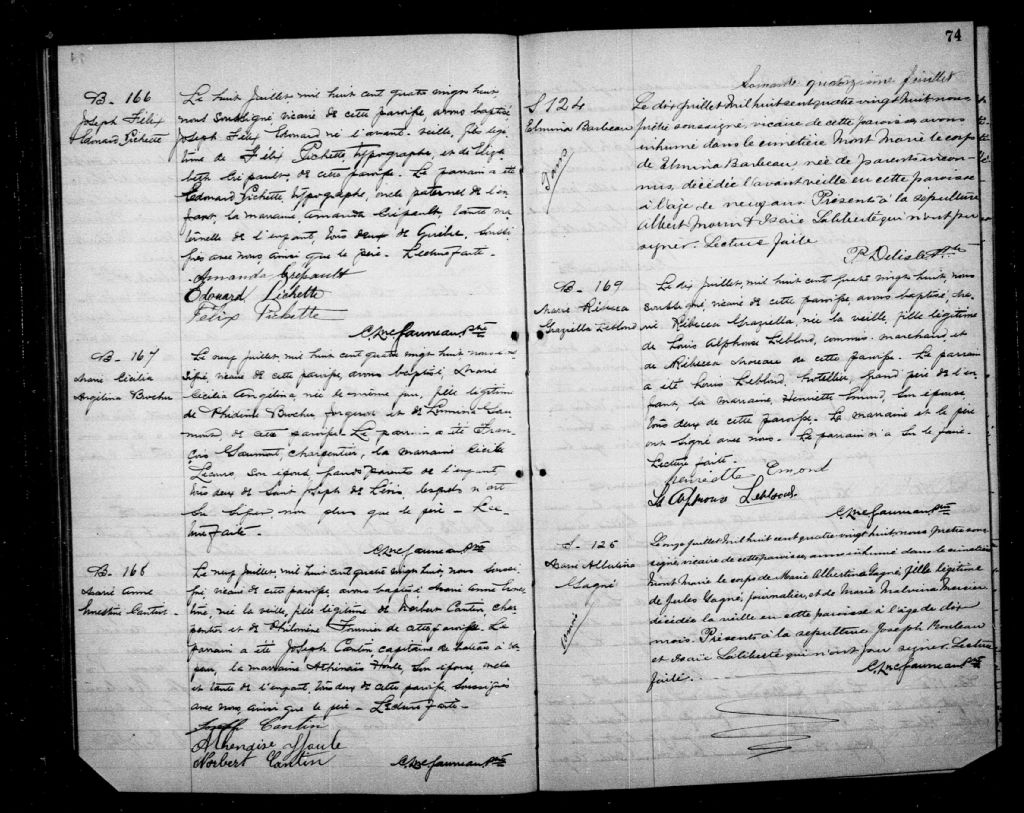 B. 166
Joseph Félix
Edmond Pichette
Le huit Juillet, mil huit cent quatre vingt huit,
nous soussigné, vicaire de cette paroisse, avons baptisé
Joseph Félix Edmond né l'avant-veille, fils légi-
time de Félix Pichette, typographe, et de Eliza-
beth Crépault, de cette paroisse. Le parrain a été
Edouard Pichette, typographe, oncle paternel de l'en-
fant, la marraine, Amanda Crépault, tante ma-
ternelle de l'enfant, tous deux de Québec, soussi-
gnés avec nous ainsi que le père. Lecture faite.
Amanda Crépault
Edouard Pichette
Félix Pichette
B. 167
Marie Cécilia
Angélina Bucher
Le neuf Juillet, mil huit cent quatre vingt huit nous sous-
signé, vicaire de cette paroisse, avons baptisé, Marie
Cécilia Angélina, née le même jour, fille légitime
de Bucher, forgeron et de
de cette paroisse. Le parrain a été Fran-
çois Gaumont, charpentier, la marraine Cécile
son épouse, grands parents de l'enfant,
tous deux de Saint Joseph de Lévis, lesquels n'ont
su signer, non plus que le père. Lec-
ture faite.
B. 168
Marie Anne
Ernestine Cantin
Le neuf Juillet, mil huit cent quatre vingt huit, nous soussi-
gné, vicaire de cette paroisse, avons baptisé Marie Anne Ernes-
tine, née la veille, fille légitime de Norbert Cantin, char-
pentier et de Philomène Fournier de cette paroisse. Le
parrain a été Joseph Cantin, capitaine de bateau à va-
peur, la marraine Athénaïs Houle, son épouse, oncle
et tante de l'enfant, tous deux de cette paroisse, soussignés
avec nous, ainsi que le père. Lecture faite.
Joseph Cantin
Athenaise Houle
Norbert Cantin
74
Soixante quatorzième feuillet
S 124
Elmina Barbeau
9 ans
Le dix Juillet mil huit cent quatre vingt huit nous
prêtre soussigné, vicaire de cette paroisse, avons
inhumé dans le cimetière Mont Marie le corps
de Elmina Barbeau, née de parents incon-
nus, décédée l'avant veille en cette paroisse
à l'age de neuf ans Présents à la sépulture
Albert Morin & Isaïe Laliberté qui n'ont pu
signer. Lecture faite
P. Delisle Ptre
B. 169
Marie Rébecca
Graziella Leblond
Le dix Juillet, mil huit cent quatre vingt huit, nous
soussigné, vicaire de cette paroisse, avons baptisé, Ma-
rie Rébecca Graziella, née la veille, fille légitime
de Louis Alphonse Leblond, commis-marchand, et
de Rébecca Moreau de cette paroisse. Le parrain
a été Louis Leblond, hotellier, grand père de l'en-
fant, la marraine, Henriette Emond, son épouse,
tous deux de cette paroisse. La marraine et le père
ont signé avec nous. Le parrain n'a su le faire.
Lecture faite.
Henriette Emond
Ls Alphonse Leblond.
S. 125
Marie Albertine
Gagné
Le onze Juillet mil huit cent quatre vingt huit nous prêtre sous-
signé, vicaire de cette paroisse, avons inhumé dans le cimetière
Mont Marie le corps de Marie Albertine Gagné, fille légitime
de Jules Gagné, journalier, et de Marie Malvina Mercier
décédée la veille en cette paroisse à l'age de dix
mois. Présents à la sépulture Joseph Bouleau
et Isaïe Laliberté qui n'ont pu signer. Lecture
faite.